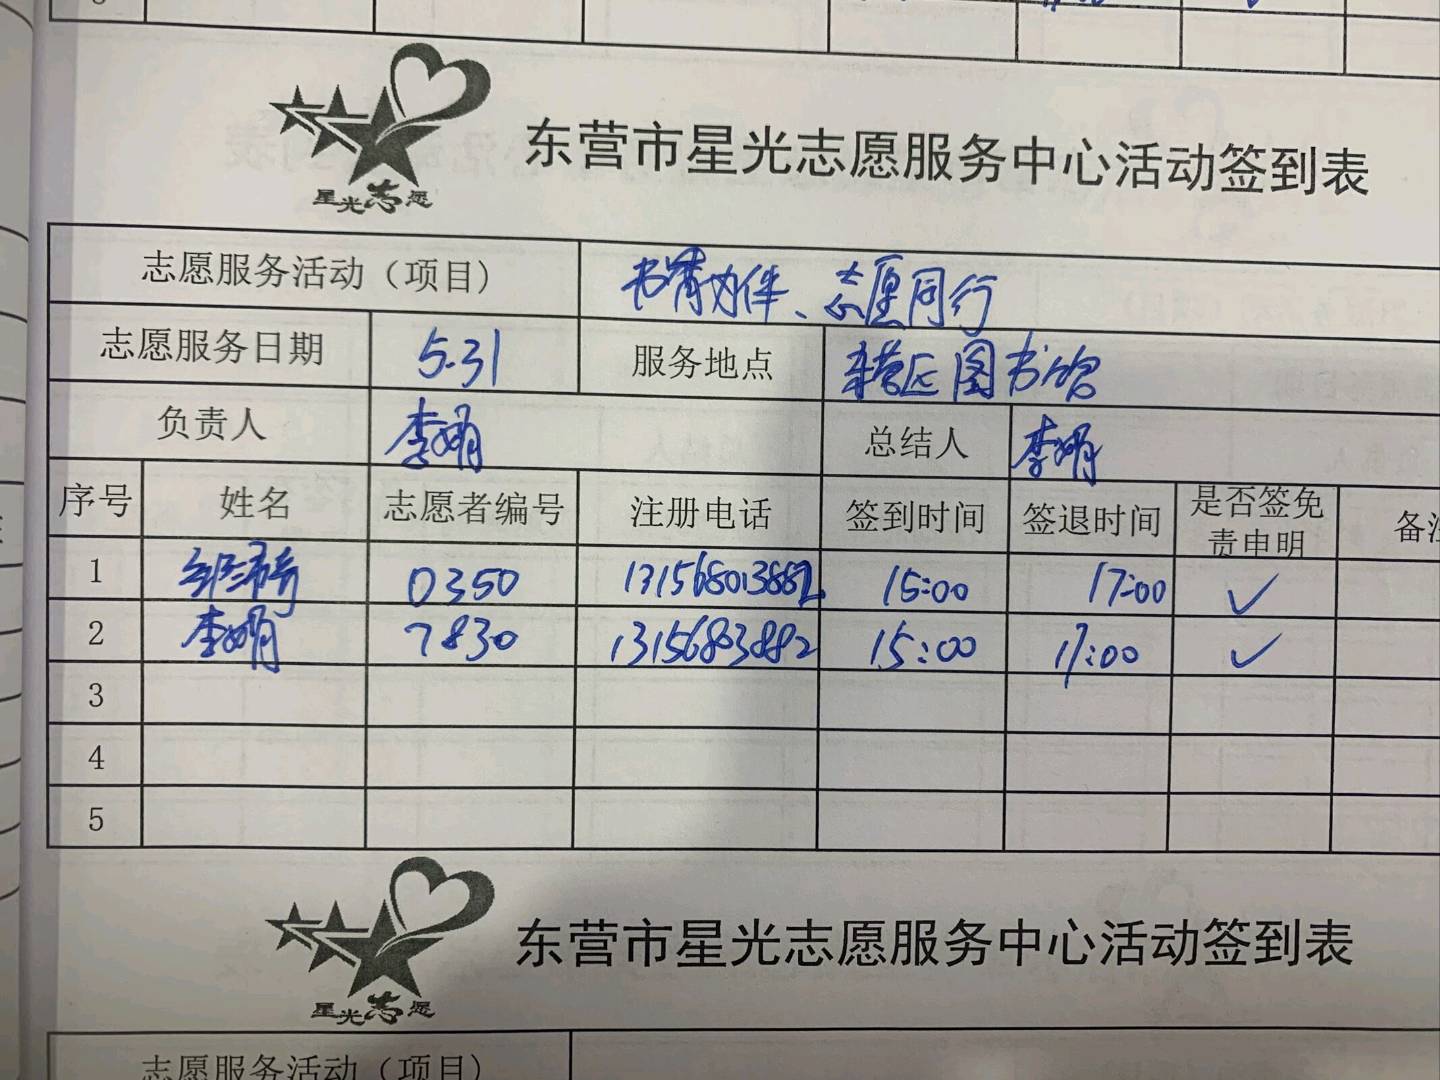 星光志愿
东营市星光志愿服务中心活动签到表
志愿服务活动（项目） 书有为伴、志愿同行
志愿服务日期 5.31 服务地点 东营区图书馆
负责人 李娟 总结人 李娟
序号 姓名 志愿者编号 注册电话 签到时间 签退时间 是否签免责申明 备注
1 0350 131568013882 15:00 17:00 ✓
2 李娟 7830 13156803882 15:00 17:00 ✓
3
4
5
星光志愿
东营市星光志愿服务中心活动签到表
志愿服务活动（项目）